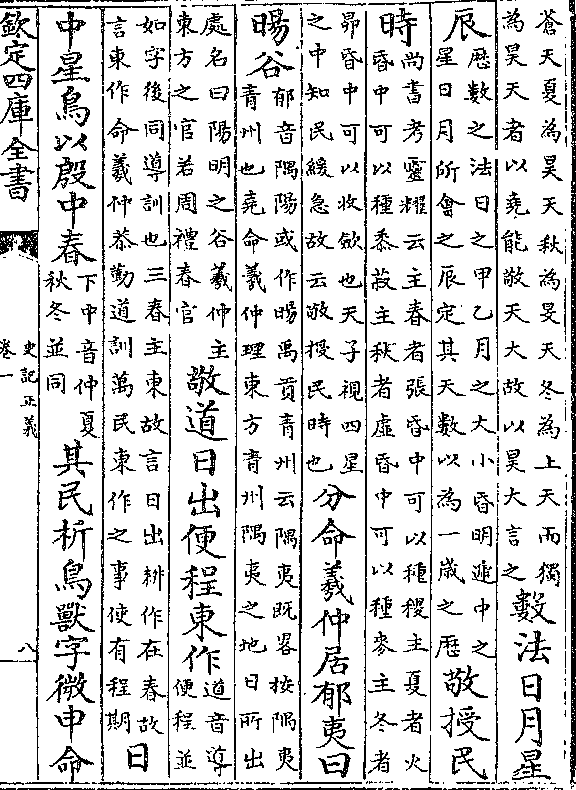 蒼天夏為昊天秋為旻天冬為上天而獨
為昊天者以堯能敬天大故以昊大言之
數法日月星
辰
歴數之法日之甲乙月之大小昏明遞中之
星日月所會之辰定其天數以為一歲之歴
敬授民
時
尚書考靈耀云主春者張昏中可以種稷主夏者火
昏中可以種黍菽主秋者虛昏中可以種麥主冬者
昴昏中可以收斂也天子視四星
之中知民緩急故云敬授民時也
分命羲仲居郁夷曰
暘谷
郁音隅陽或作暘禹貢青州云隅夷既畧按隅夷
青州也堯命羲仲理東方青州隅夷之地日所出
處名曰陽明之谷羲仲主
東方之官若周禮春官
敬道日出便程東作
道音導
便程並
如字後同導訓也三春主東故言日出耕作在春故
言東作命羲仲恭勤道訓萬民東作之事使有程期
日
中星鳥以殷中春
下中音仲夏
秋冬並同
其民析鳥獸字微申命
欽定四庫全書
史記正義
卷一
八